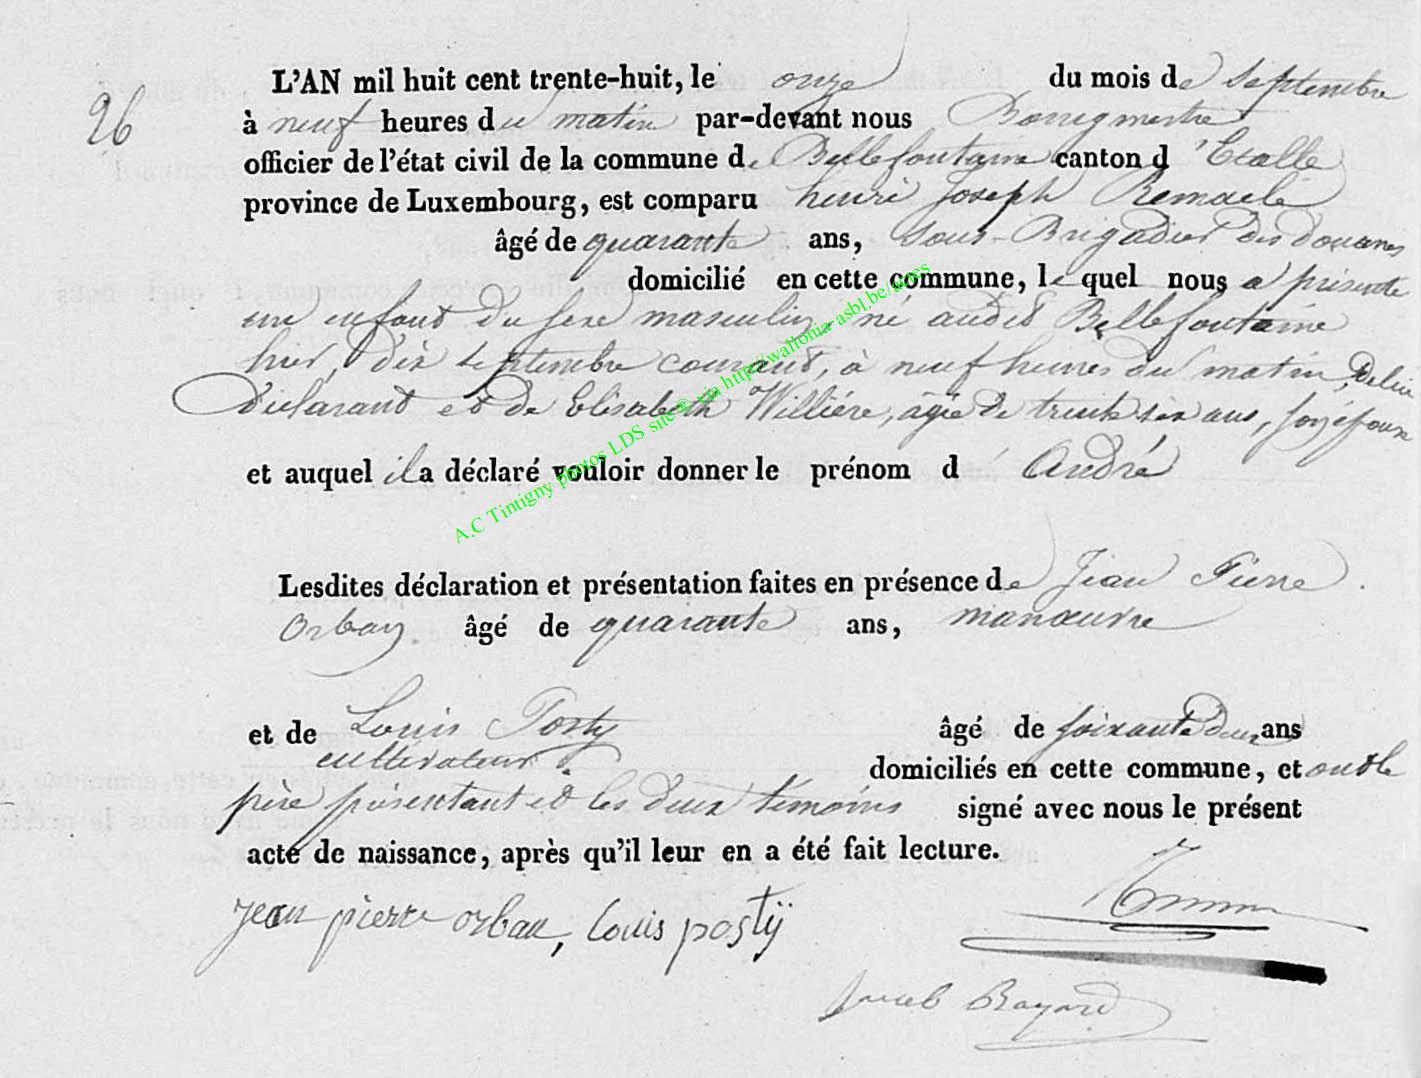 26
L'AN mil huit cent trente-huit, le onze du mois de septembre
à neuf heures du matin par-devant nous Bourgmestre
officier de l'état civil de la commune de Bellefontaine canton d'Etalle
province de Luxembourg, est comparu henri Joseph Remacle
âgé de quarante ans, sous-Brigadier des douanes
domicilié en cette commune, le quel nous a présenté
un enfant du sexe masculin, né audit Bellefontaine
hier, dix septembre courant, à neuf heures du matin, de lui
Déclarant et de Elisabeth Willière, âgée de trente six ans, son épouse
et auquel il a déclaré vouloir donner le prénom d' André
Lesdites déclaration et présentation faites en présence de Jean Pierre
Orban âgé de quarante ans, manœuvre
et de Louis Posty âgé de soixante deux ans
cultivateur domiciliés en cette commune, et ont le
père présentant et les deux témoins signé avec nous le présent
acte de naissance, après qu'il leur en a été fait lecture.
jean pierre orban, louis postÿ
Jacob Bayard
A.C Tintigny photos LDS site © via http://wallonia-asbl.be/actes